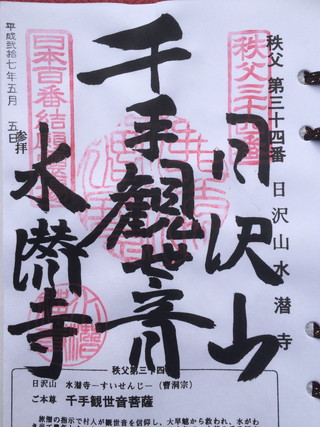 秩父 第三十四番 日沢山 水潜寺
日沢山
千手觀世音
水潜寺
平成弐拾七年五月 五日
参拝
日本百番結願
秩父第三十四
日沢山 水潜寺―すいせんじ―(曹洞宗)
ご本尊 千手観世音菩薩
旅僧の指示で村人が観世音を信仰し、大旱魃から救われ、水がわ